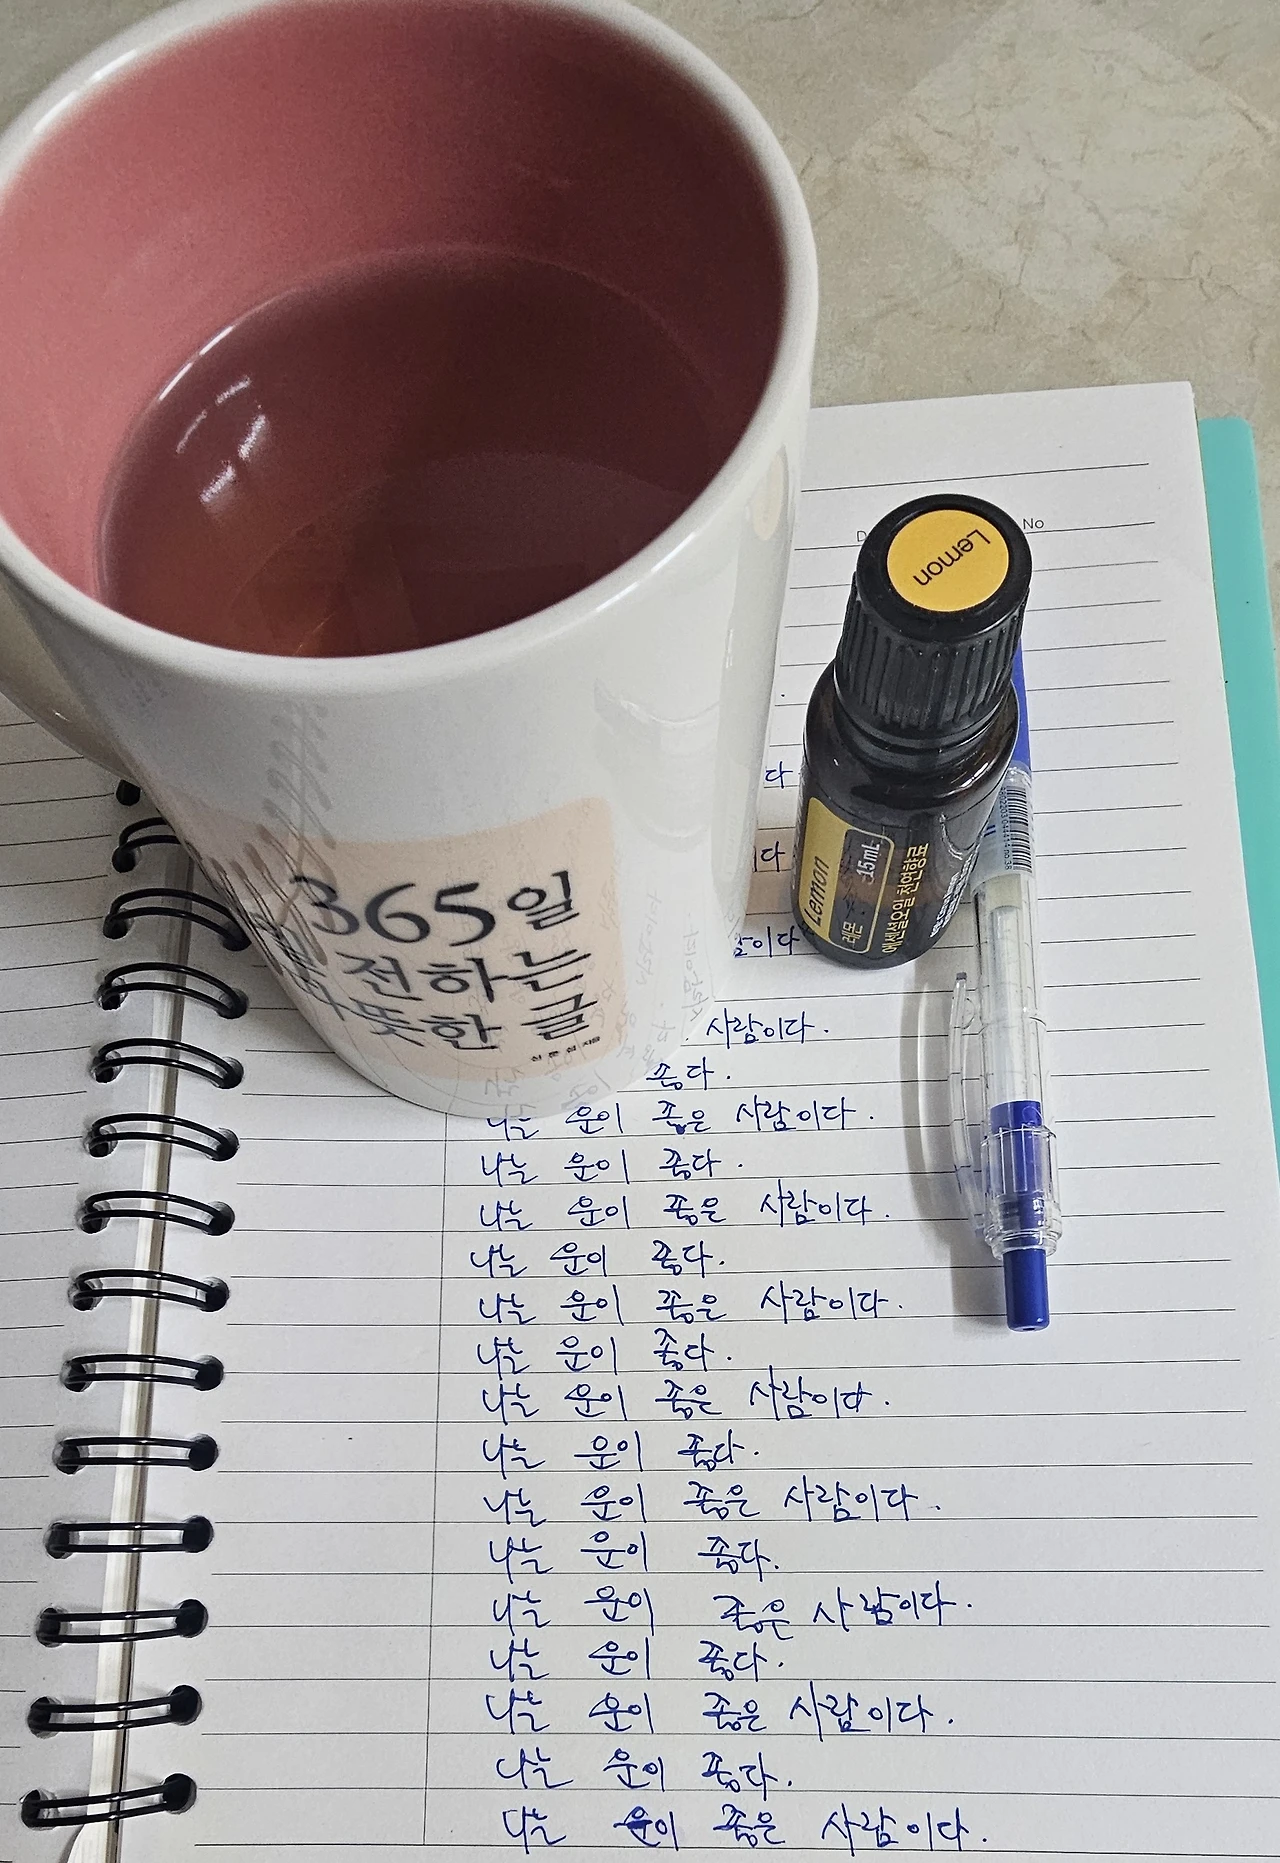 365일
전하는
따뜻한 글
Lemon
No
Lemon
15mL
레몬
에센셜오일 천연향료
다
다.
이다
사람이다.
좋다.
나는 운이 좋은 사람이다.
나는 운이 좋다.
나는 운이 좋은 사람이다.
나는 운이 좋다.
나는 운이 좋은 사람이다.
나는 운이 좋다.
나는 운이 좋은 사람이다.
나는 운이 좋다.
나는 운이 좋은 사람이다.
나는 운이 좋다.
나는 운이 좋은 사람이다.
나는 운이 좋다.
나는 운이 좋은 사람이다.
나는 운이 좋다.
나는 운이 좋은 사람이다.